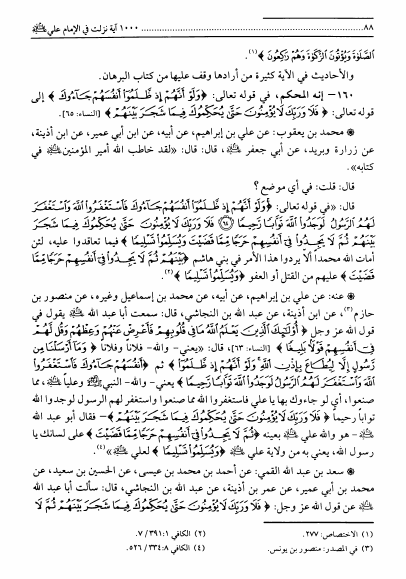 ٨٨ ١٠٠٠ آية نزلت في الإمام علي ﷺ
ٱلصَّلَوٰةَ وَيُؤْتُونَ ٱلزَّكَوٰةَ وَهُمْ رَٰكِعُونَ ﴾(١).
والأحاديث في الآية كثيرة من أرادها وقف عليها من كتاب البرهان.
١٦٠- إنه المحكم، في قوله تعالى: ﴿ وَلَوْ أَنَّهُمْ إِذ ظَّلَمُوٓا۟ أَنفُسَهُمْ جَآءُوكَ ﴾ إلى
قوله تعالى: ﴿ فَلَا وَرَبِّكَ لَا يُؤْمِنُونَ حَتَّىٰ يُحَكِّمُوكَ فِيمَا شَجَرَ بَيْنَهُمْ ﴾ [النساء: ٦٥].
* محمد بن يعقوب: عن علي بن إبراهيم، عن أبيه، عن ابن أبي عمير، عن ابن أذينة،
عن زرارة وبريد، عن أبي جعفر ، قال: قال: «لقد خاطب الله أمير المؤمنين في
كتابه».
قال: قلت: في أي موضع؟
قال: «في قوله تعالى: ﴿وَلَوْ أَنَّهُمْ إِذ ظَّلَمُوٓا۟ أَنفُسَهُمْ جَآءُوكَ فَٱسْتَغْفَرُوا۟ ٱللَّهَ وَٱسْتَغْفَرَ
لَهُمُ ٱلرَّسُولُ لَوَجَدُوا۟ ٱللَّهَ تَوَّابًا رَّحِيمًا ۝ فَلَا وَرَبِّكَ لَا يُؤْمِنُونَ حَتَّىٰ يُحَكِّمُوكَ فِيمَا شَجَرَ
بَيْنَهُمْ ثُمَّ لَا يَجِدُوا۟ فِىٓ أَنفُسِهِمْ حَرَجًا مِّمَّا قَضَيْتَ وَيُسَلِّمُوا۟ تَسْلِيمًا ﴾ فيما تعاقدوا عليه، لئن
أمات الله محمداً ألا يردوا هذا الأمر في بني هاشم ﴿بَيْنَهُمْ ثُمَّ لَا يَجِدُوا۟ فِىٓ أَنفُسِهِمْ حَرَجًا مِّمَّا
قَضَيْتَ ﴾ عليهم من القتل أو العفو ﴿وَيُسَلِّمُوا۟ تَسْلِيمًا ﴾(٢).
* عنه: عن علي بن إبراهيم، عن أبيه، عن محمد بن إسماعيل وغيره، عن منصور بن
حازم(٣)، عن ابن أذينة، عن عبد الله بن النجاشي، قال: سمعت أبا عبد الله يقول في
قول الله عز وجل ﴿ أُو۟لَٰٓئِكَ ٱلَّذِينَ يَعْلَمُ ٱللَّهُ مَا فِى قُلُوبِهِمْ فَأَعْرِضْ عَنْهُمْ وَعِظْهُمْ وَقُل لَّهُمْ
فِىٓ أَنفُسِهِمْ قَوْلًۢا بَلِيغًا ﴾ [النساء: ٦٣]، قال: «يعني- والله- فلاناً وفلاناً ﴿ وَمَآ أَرْسَلْنَا مِن
رَّسُولٍ إِلَّا لِيُطَاعَ بِإِذْنِ ٱللَّهِ وَلَوْ أَنَّهُمْ إِذ ظَّلَمُوٓا۟ ﴾ ثم ﴿أَنفُسَهُمْ جَآءُوكَ فَٱسْتَغْفَرُوا۟
ٱللَّهَ وَٱسْتَغْفَرَ لَهُمُ ٱلرَّسُولُ لَوَجَدُوا۟ ٱللَّهَ تَوَّابًا رَّحِيمًا ﴾ يعني- والله- النبي وعلياً ، مما
صنعوا، أي لو جاءوك بها يا علي فاستغفروا الله مما صنعوا واستغفر لهم الرسول لوجدوا الله
تواباً رحيماً ﴿ فَلَا وَرَبِّكَ لَا يُؤْمِنُونَ حَتَّىٰ يُحَكِّمُوكَ فِيمَا شَجَرَ بَيْنَهُمْ ﴾- فقال أبو عبد الله
- هو والله علي بعينه ﴿ثُمَّ لَا يَجِدُوا۟ فِىٓ أَنفُسِهِمْ حَرَجًا مِّمَّا قَضَيْتَ ﴾ على لسانك يا
رسول الله، يعني به من ولاية علي ﴿وَيُسَلِّمُوا۟ تَسْلِيمًا ﴾ لعلي »(٤).
* سعد بن عبد الله القمي: عن أحمد بن محمد بن عيسى، عن الحسين بن سعيد، عن
محمد بن أبي عمير، عن عمر بن أذينة، عن عبد الله بن النجاشي، قال: سألت أبا عبد الله
عن قول الله عز وجل: ﴿ فَلَا وَرَبِّكَ لَا يُؤْمِنُونَ حَتَّىٰ يُحَكِّمُوكَ فِيمَا شَجَرَ بَيْنَهُمْ ثُمَّ لَا
(١) الاختصاص: ٢٧٧. (٢) الكافي ١: ٣٩١/ ٧.
(٣) في المصدر: منصور بن يونس. (٤) الكافي ٨: ٣٣٤/ ٥٢٦.